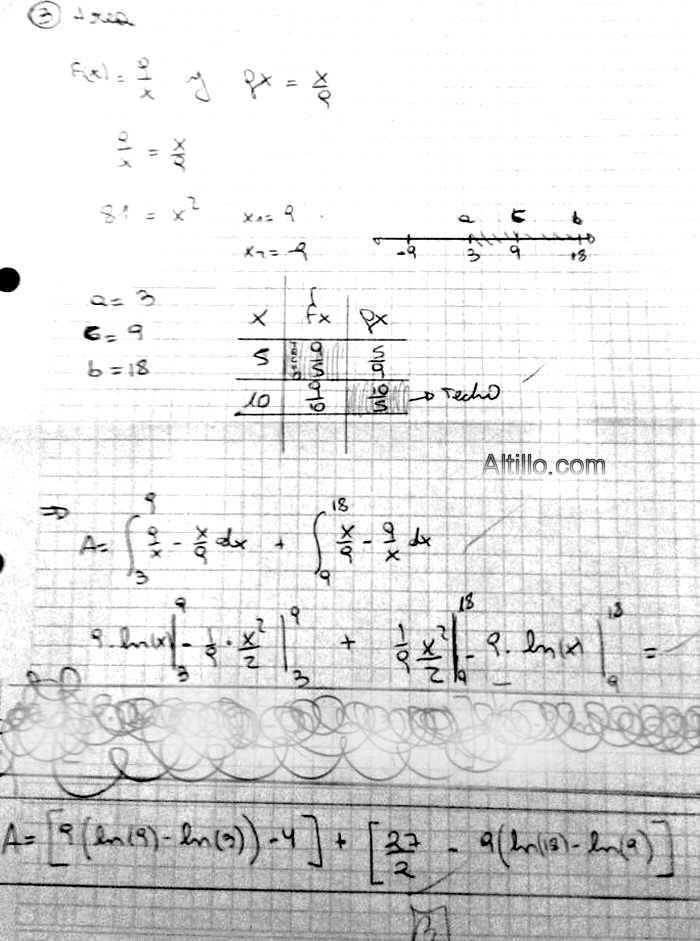 ③ Area
F(x) = 9/x y gx = x/9
9/x = x/9
81 = x² x₁ = 9
x₂ = -9
a c b
-9 3 9 18
a = 3
c = 9
b = 18
x fx gx
5 9/5 5/9
10 9/10 10/5 → Techo
Altillo.com
⇒ A = ∫₃⁹ 9/x - x/9 dx + ∫₉¹⁸ x/9 - 9/x dx
9 · ln(x) |₃⁹ - 1/9 · x²/2 |₃⁹ + 1/9 x²/2 |₉¹⁸ - 9 · ln(x) |₉¹⁸ =
A = [9(ln(9) - ln(3)) - 4] + [27/2 - 9(ln(18) - ln(9))]